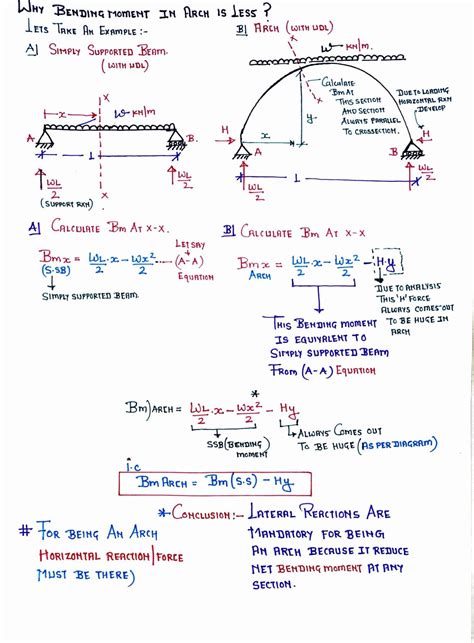 Why Bending Moment In Arch is Less?
Lets Take An Example:-
A] Simply Supported Beam.
(with UDL)
B] Arch (with UDL)
w KN/m
X
Calculate
Bm At
This section
And section
Always parallel
To crossection.
Due to loading
Horizontal Rxn
Develop
X
x
w KN/m
A
B.
L
X
WL/2
(Support Rxn)
WL/2
H
A
x
y
X
B
H
L
WL/2
WL/2
A] Calculate Bm At x-x.
Bmx = WL/2 .x - Wx²/2 --- (A-A)
(S.SB)
Let say
Equation
Simply supported Beam.
B] Calculate Bm At x-x
Bmx = WL/2 .x - Wx²/2 - H.y
Arch
Due to Analysis
This 'H' Force
Always comes out
To be huge in
Arch
This Bending moment
Is equivalent to
Simply supported Beam
From (A-A) Equation
*
Bm)Arch = WL/2 .x - Wx²/2 - Hy
SSB(Bending
Moment)
Always comes out
To be huge (As per diagram)
i.e
Bm Arch = Bm (S.S) - Hy
* Conclusion:- Lateral Reactions Are
Mandatory for being
An Arch because it reduce
Net Bending moment at any
Section.
# For Being An Arch
Horizontal Reaction/Force
Must be there)